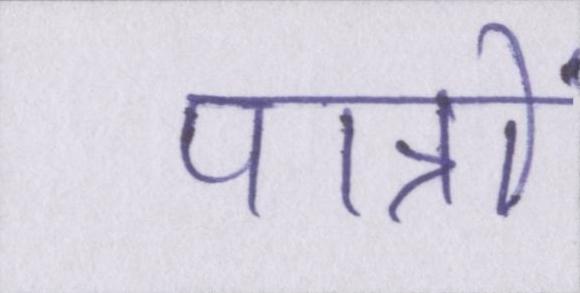 पात्रों